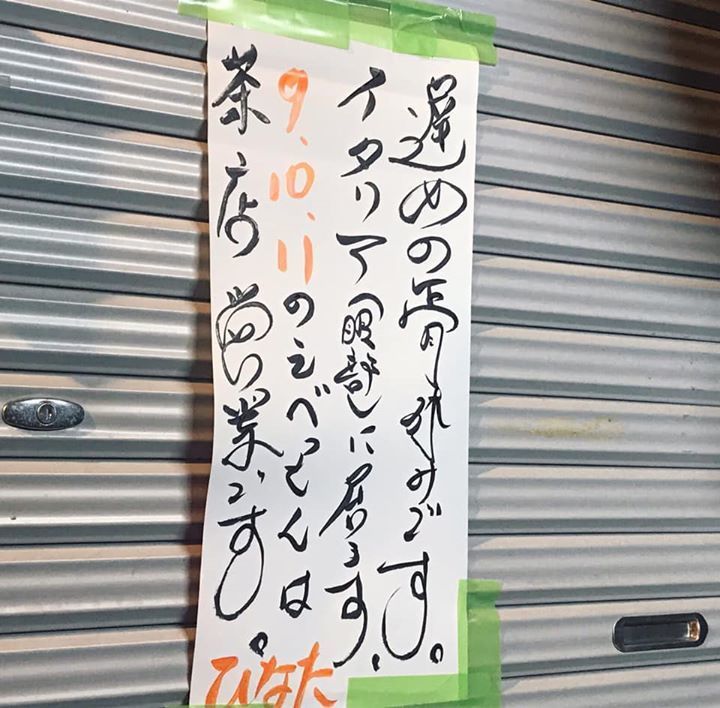 遅めの正月休みです。
イタリア(眼龍)に居ます、
9、10、11のえべっさんは
茶店営業です。
ひなた